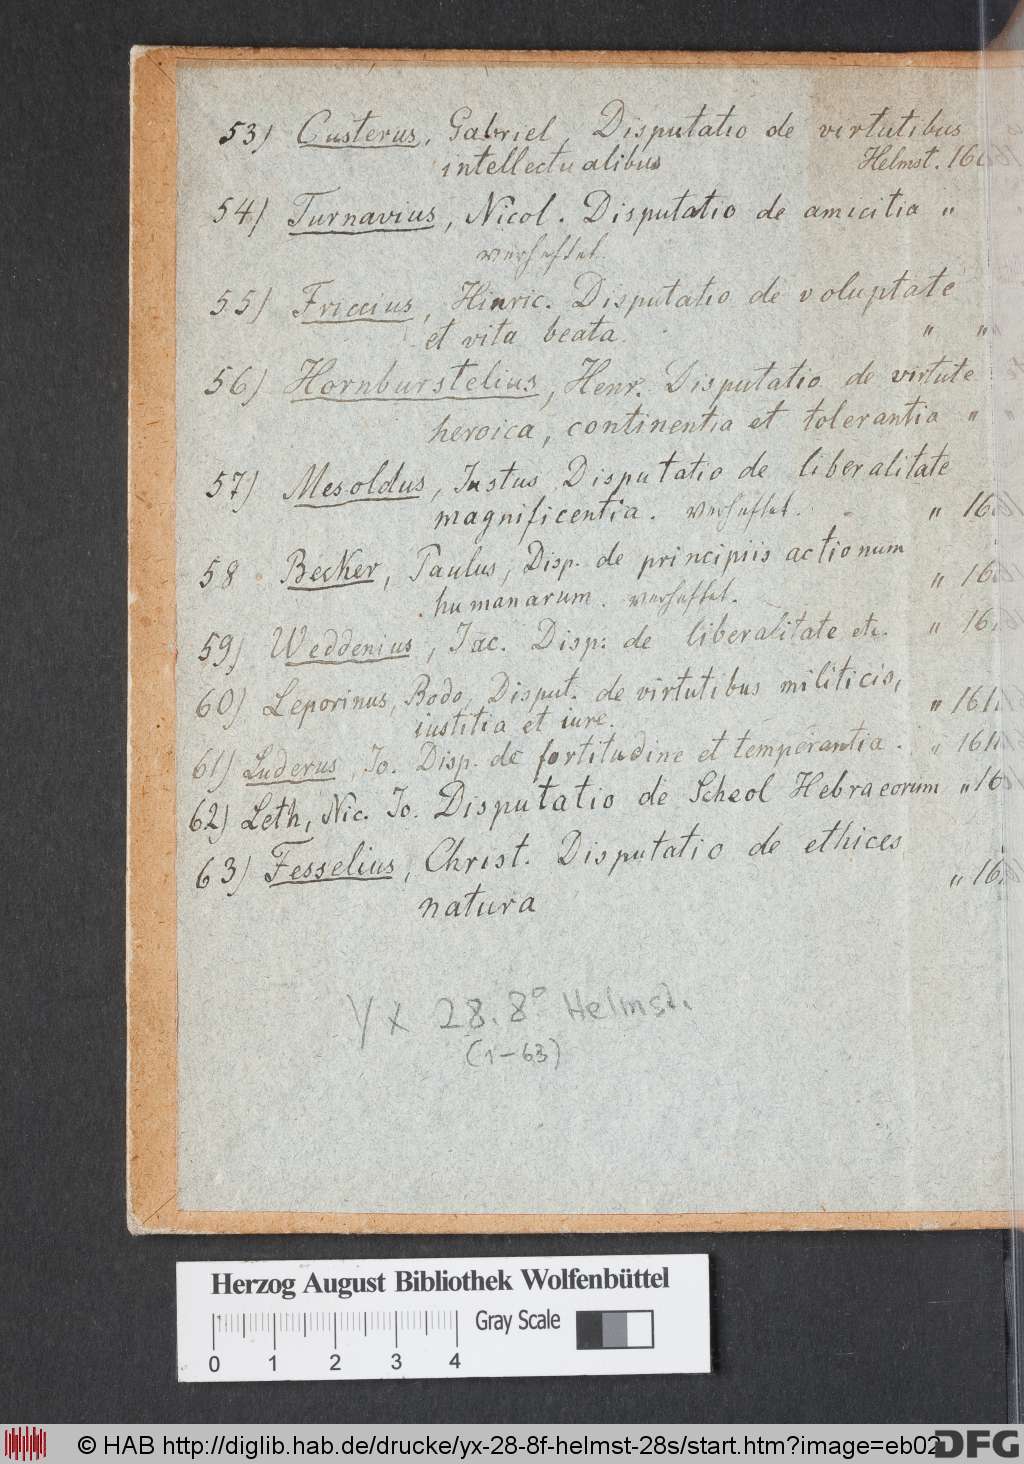 53) Custerus, Gabriel, Disputatio de virtutibus
intellectualibus Helmst. 160
54) Turnavius, Nicol. Disputatio de amicitia "
verheftet.
55) Friccius, Hinric. Disputatio de voluptate
et vita beata. " "
56) Hornburstelius, Henr. Disputatio de virtute
heroica, continentia et tolerantia "
57) Mesoldus, Justus Disputatio de liberalitate
magnificentia. verheftet. " 16
58 Becker, Paulus, Disp. de principiis actionum
humanarum. verheftet. " 16
59) Weddenius, Jac. Disp: de liberalitate etc. " 16
60) Leporinus, Bodo, Disput. de virtutibus militicis,
iustitia et iure. " 161
61) Luderus, Jo. Disp. de fortitudine et temperantia. " 161
62) Leth, Nic. Jo. Disputatio de Scheol Hebraeorum " 16
63) Fesselius, Christ. Disputatio de ethices
natura " 16
Yx 28. 8° Helmst.
(1-63)
Herzog August Bibliothek Wolfenbüttel
Gray Scale
0 1 2 3 4
© HAB http://diglib.hab.de/drucke/yx-28-8f-helmst-28s/start.htm?image=eb02
DFG